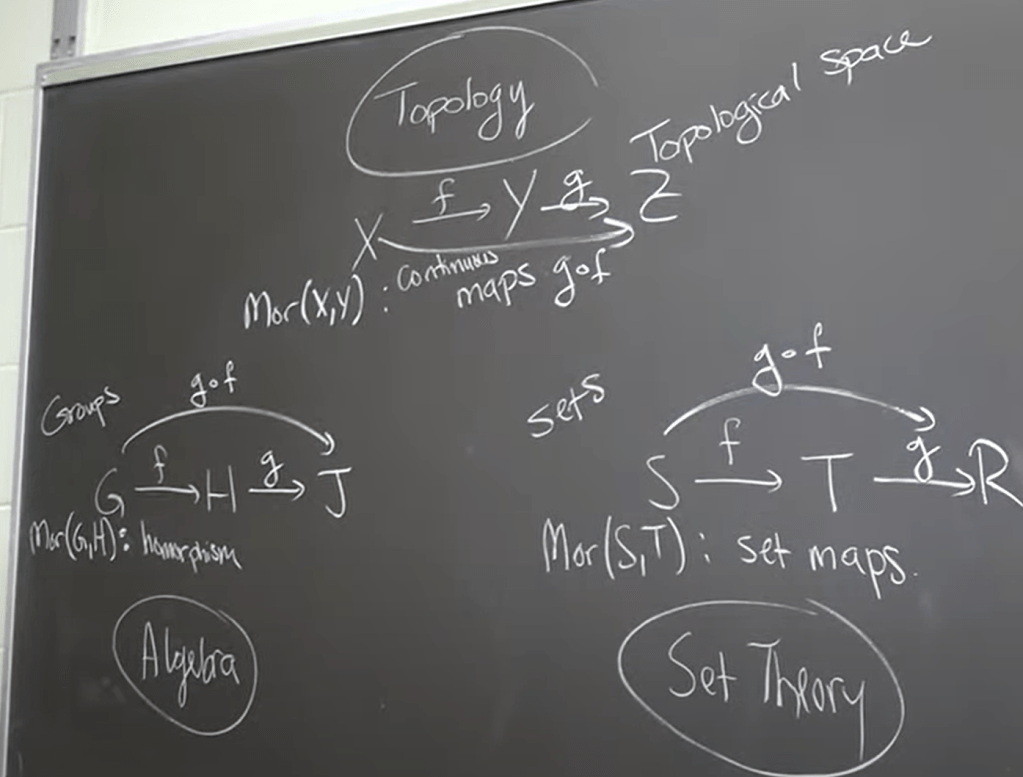 Topology
Topological space
X f Y g Z
Mor(X,Y) : continuous maps g∘f
Groups
g∘f
G f H g J
Mor(G,H) : homorphism
Algebra
sets
g∘f
S f T g R
Mor(S,T) : set maps.
Set Theory